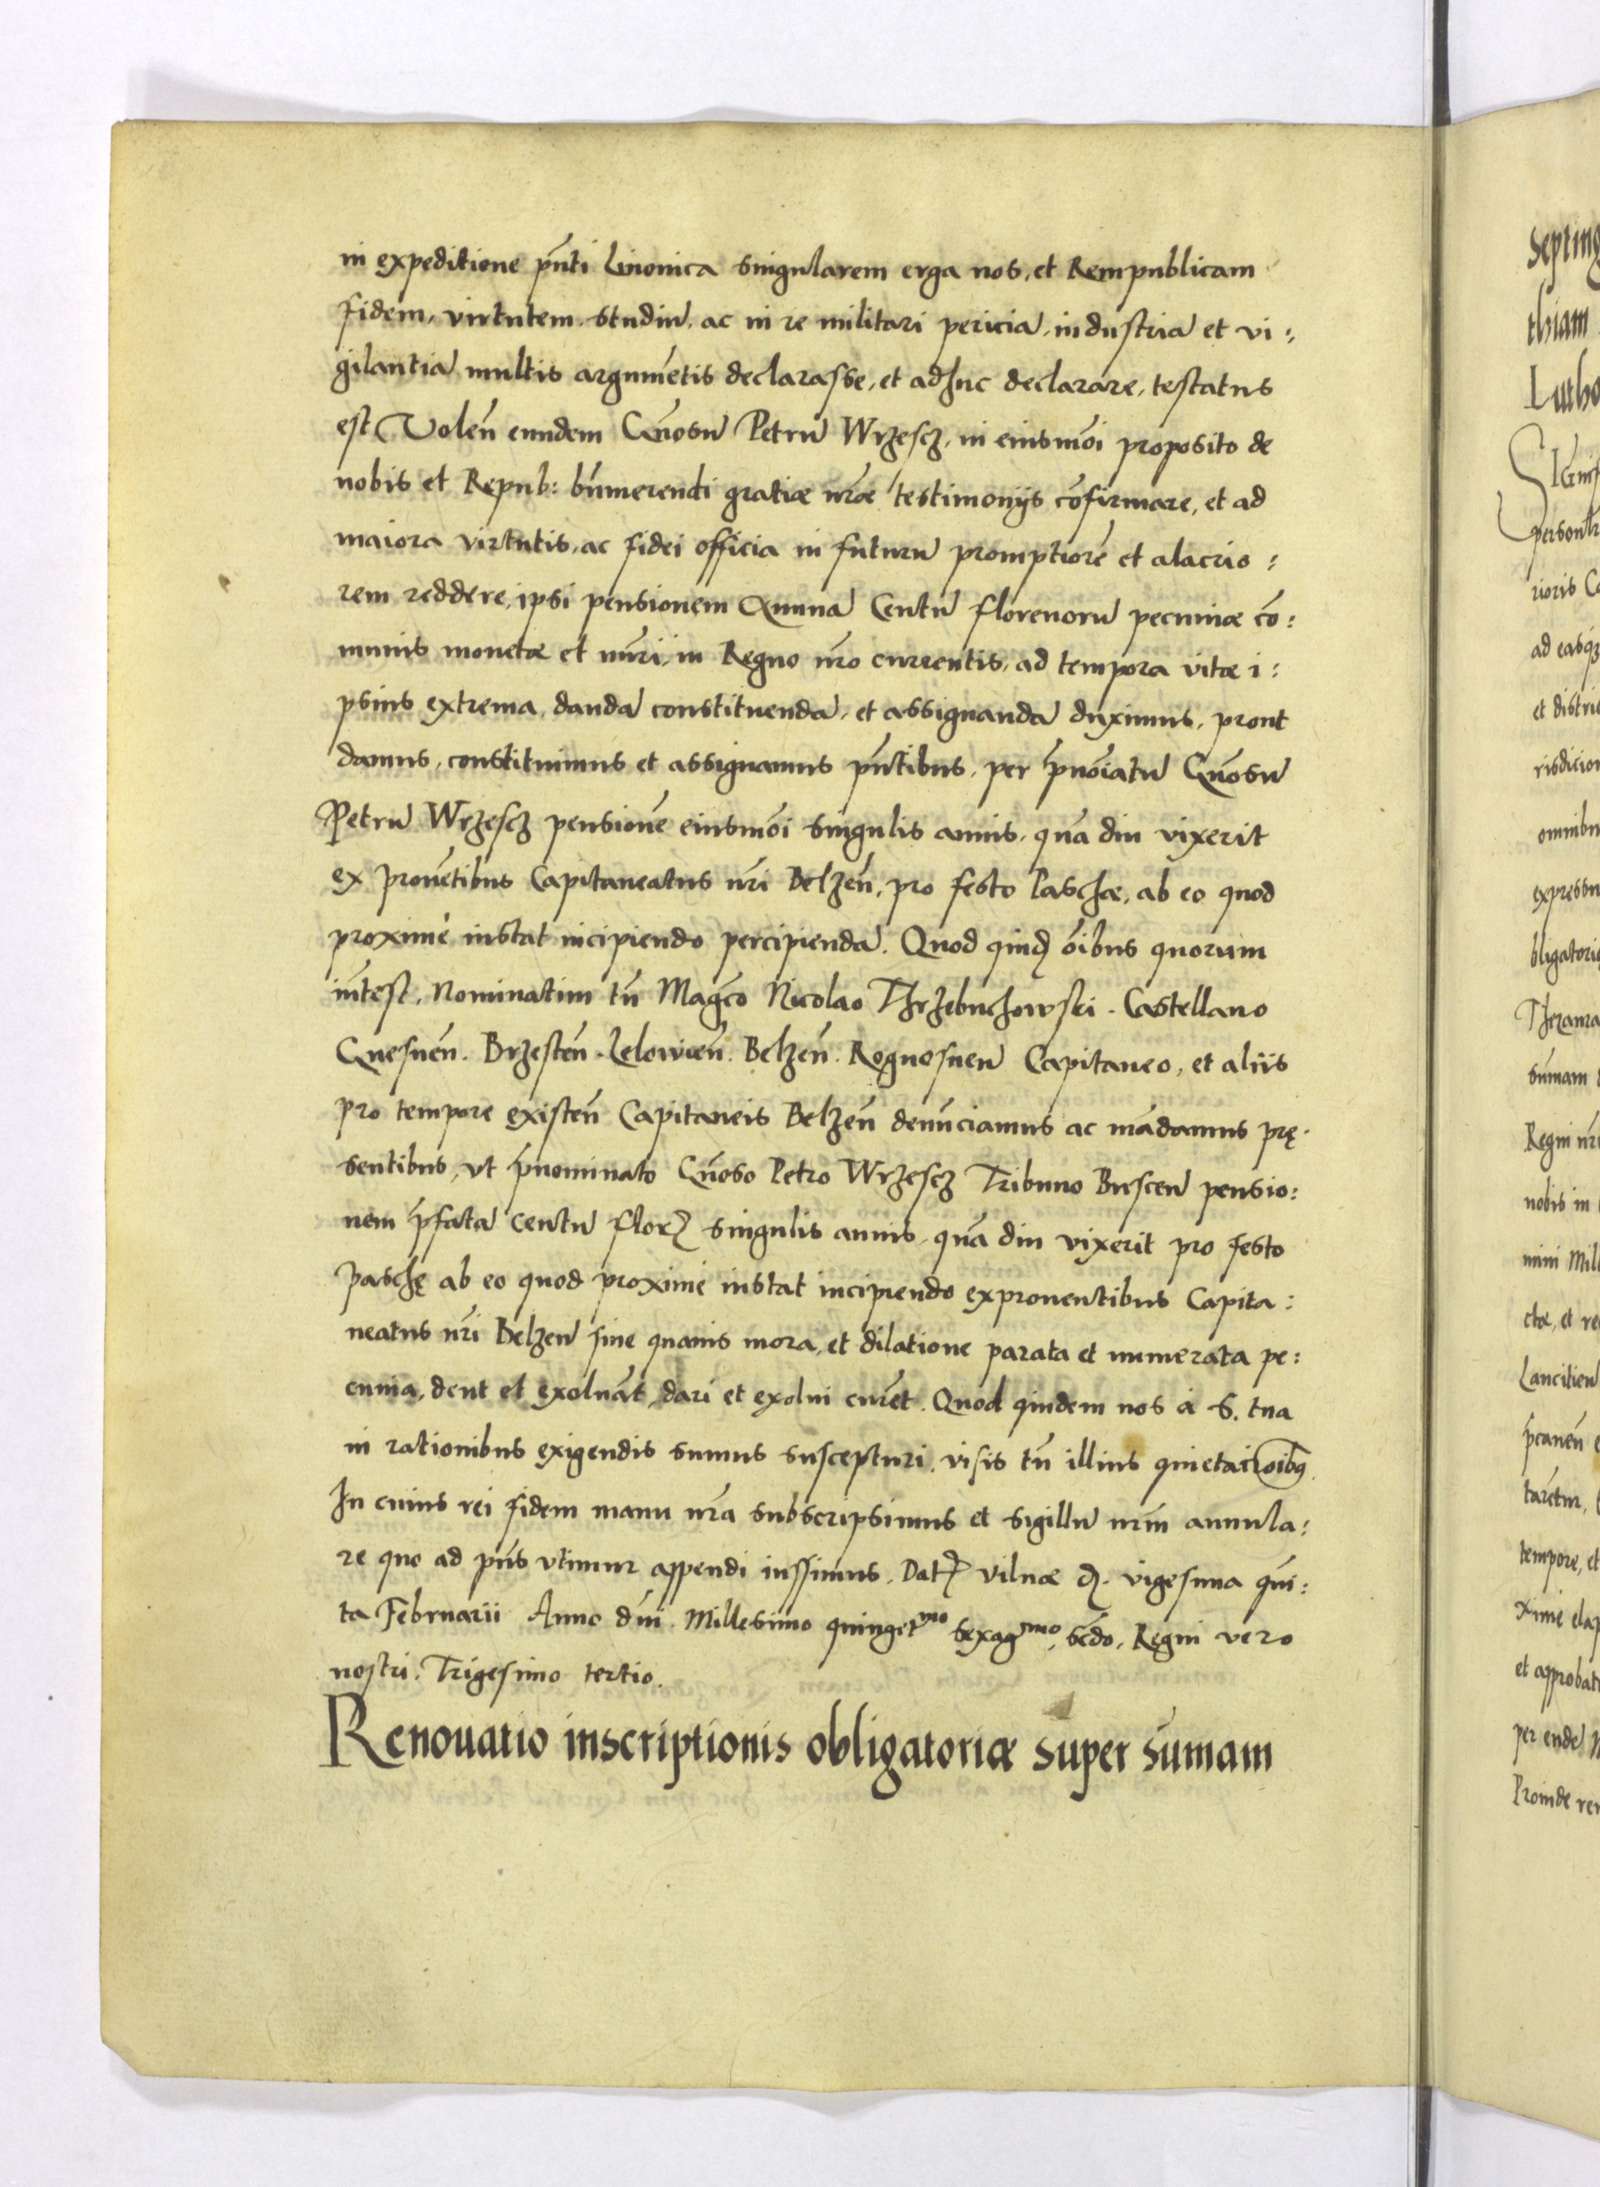 in expeditione pñti Liuonica singularem erga nos, et Rempublicam
fidem, virtutem, studiũ, ac in re militari pericia, industria et vi:
gilantia multis argumẽtis declarasse, et adhuc declarare, testatus
est Volẽn eundem Gñosũ Petrũ Wrzescz, in eiusmõi proposito de
nobis et Repub: bñmerendi gratiæ nr̃æ testimonijs cõfirmare, et ad
maiora virtutis, ac fidei officia in futurũ promptiorẽ et alacrio:
rem reddere, ipsi pensionem Annuã Centũ florenorũ pecuniæ cõ:
munis monetæ et nũri, in Regno nr̃o currentis, ad tempora vitæ i:
psius extrema, dandã constituendã, et assignandã duximus, prout
damus, constituimus et assignamus pñtibus, per p̃noĩatũ Gñosũ
Petrũ Wrzescz pensionẽ eiusmõi singulis annis, quã diu vixerit
ex prouẽtibus Capitaneatus nr̃i Belzeñ, pro festo Paschæ, ab eo quod
proximè instat incipiendo percipiendã. Quod quidẽ oĩbus quorum
int̃est, Nominatim tñ Magco Nicolao Thrzebuchowski. Castellano
Gnesneñ. Brzesteñ. Lelowieñ. Belzeñ. Rogosneñ Capitaneo, et aliis
pro tempore existeñ Capitaneis Belzeñ denũciamus ac mãdamus prę.
sentibus, vt p̃nominato Gñoso Petro Wrzescz Tribuno Buscen̄ pensio:
nem p̃fatã centũ florʒ singulis annis, quã diu vixerit pro festo
Paschę ab eo quod proximè instat incipiendo exprouentibus Capita:
neatus nr̃i Belzeñ sine quauis mora, et dilatione parata et numerata pe:
cunia, dent et exoluãt, dari et exolui curẽt. Quod quidem nos à S. tua
in rationibus exigendis sumus suscepturi, visis tñ illius quietacioibꝰ.
In cuius rei fidem manu nr̃a subscripsimus et sigillũ nr̃m annula:
re quo ad pñs vtimur appendi iussimus. Datʒ Vilnæ d. vigesima quĩ:
ta Februarii Anno dñi. Millesimo quinget^mo sexag^mo, sc̃do, Regni vero
nostri. Trigesimo tertio.
Renouatio inscriptionis obligatoriæ super sum̃am
Septing
thiam
Lutho
SIGnif
person
rioris Ca
ad easqʒ
et distri
risdicion
omnibu
expressu
bligatoriã
sum̃am
Regni nr̃i
nobis in
mini Mil
ctæ, et re
Lancitieñ
tempore, et
xime elap
et approbat
per eundẽ
Proinde re